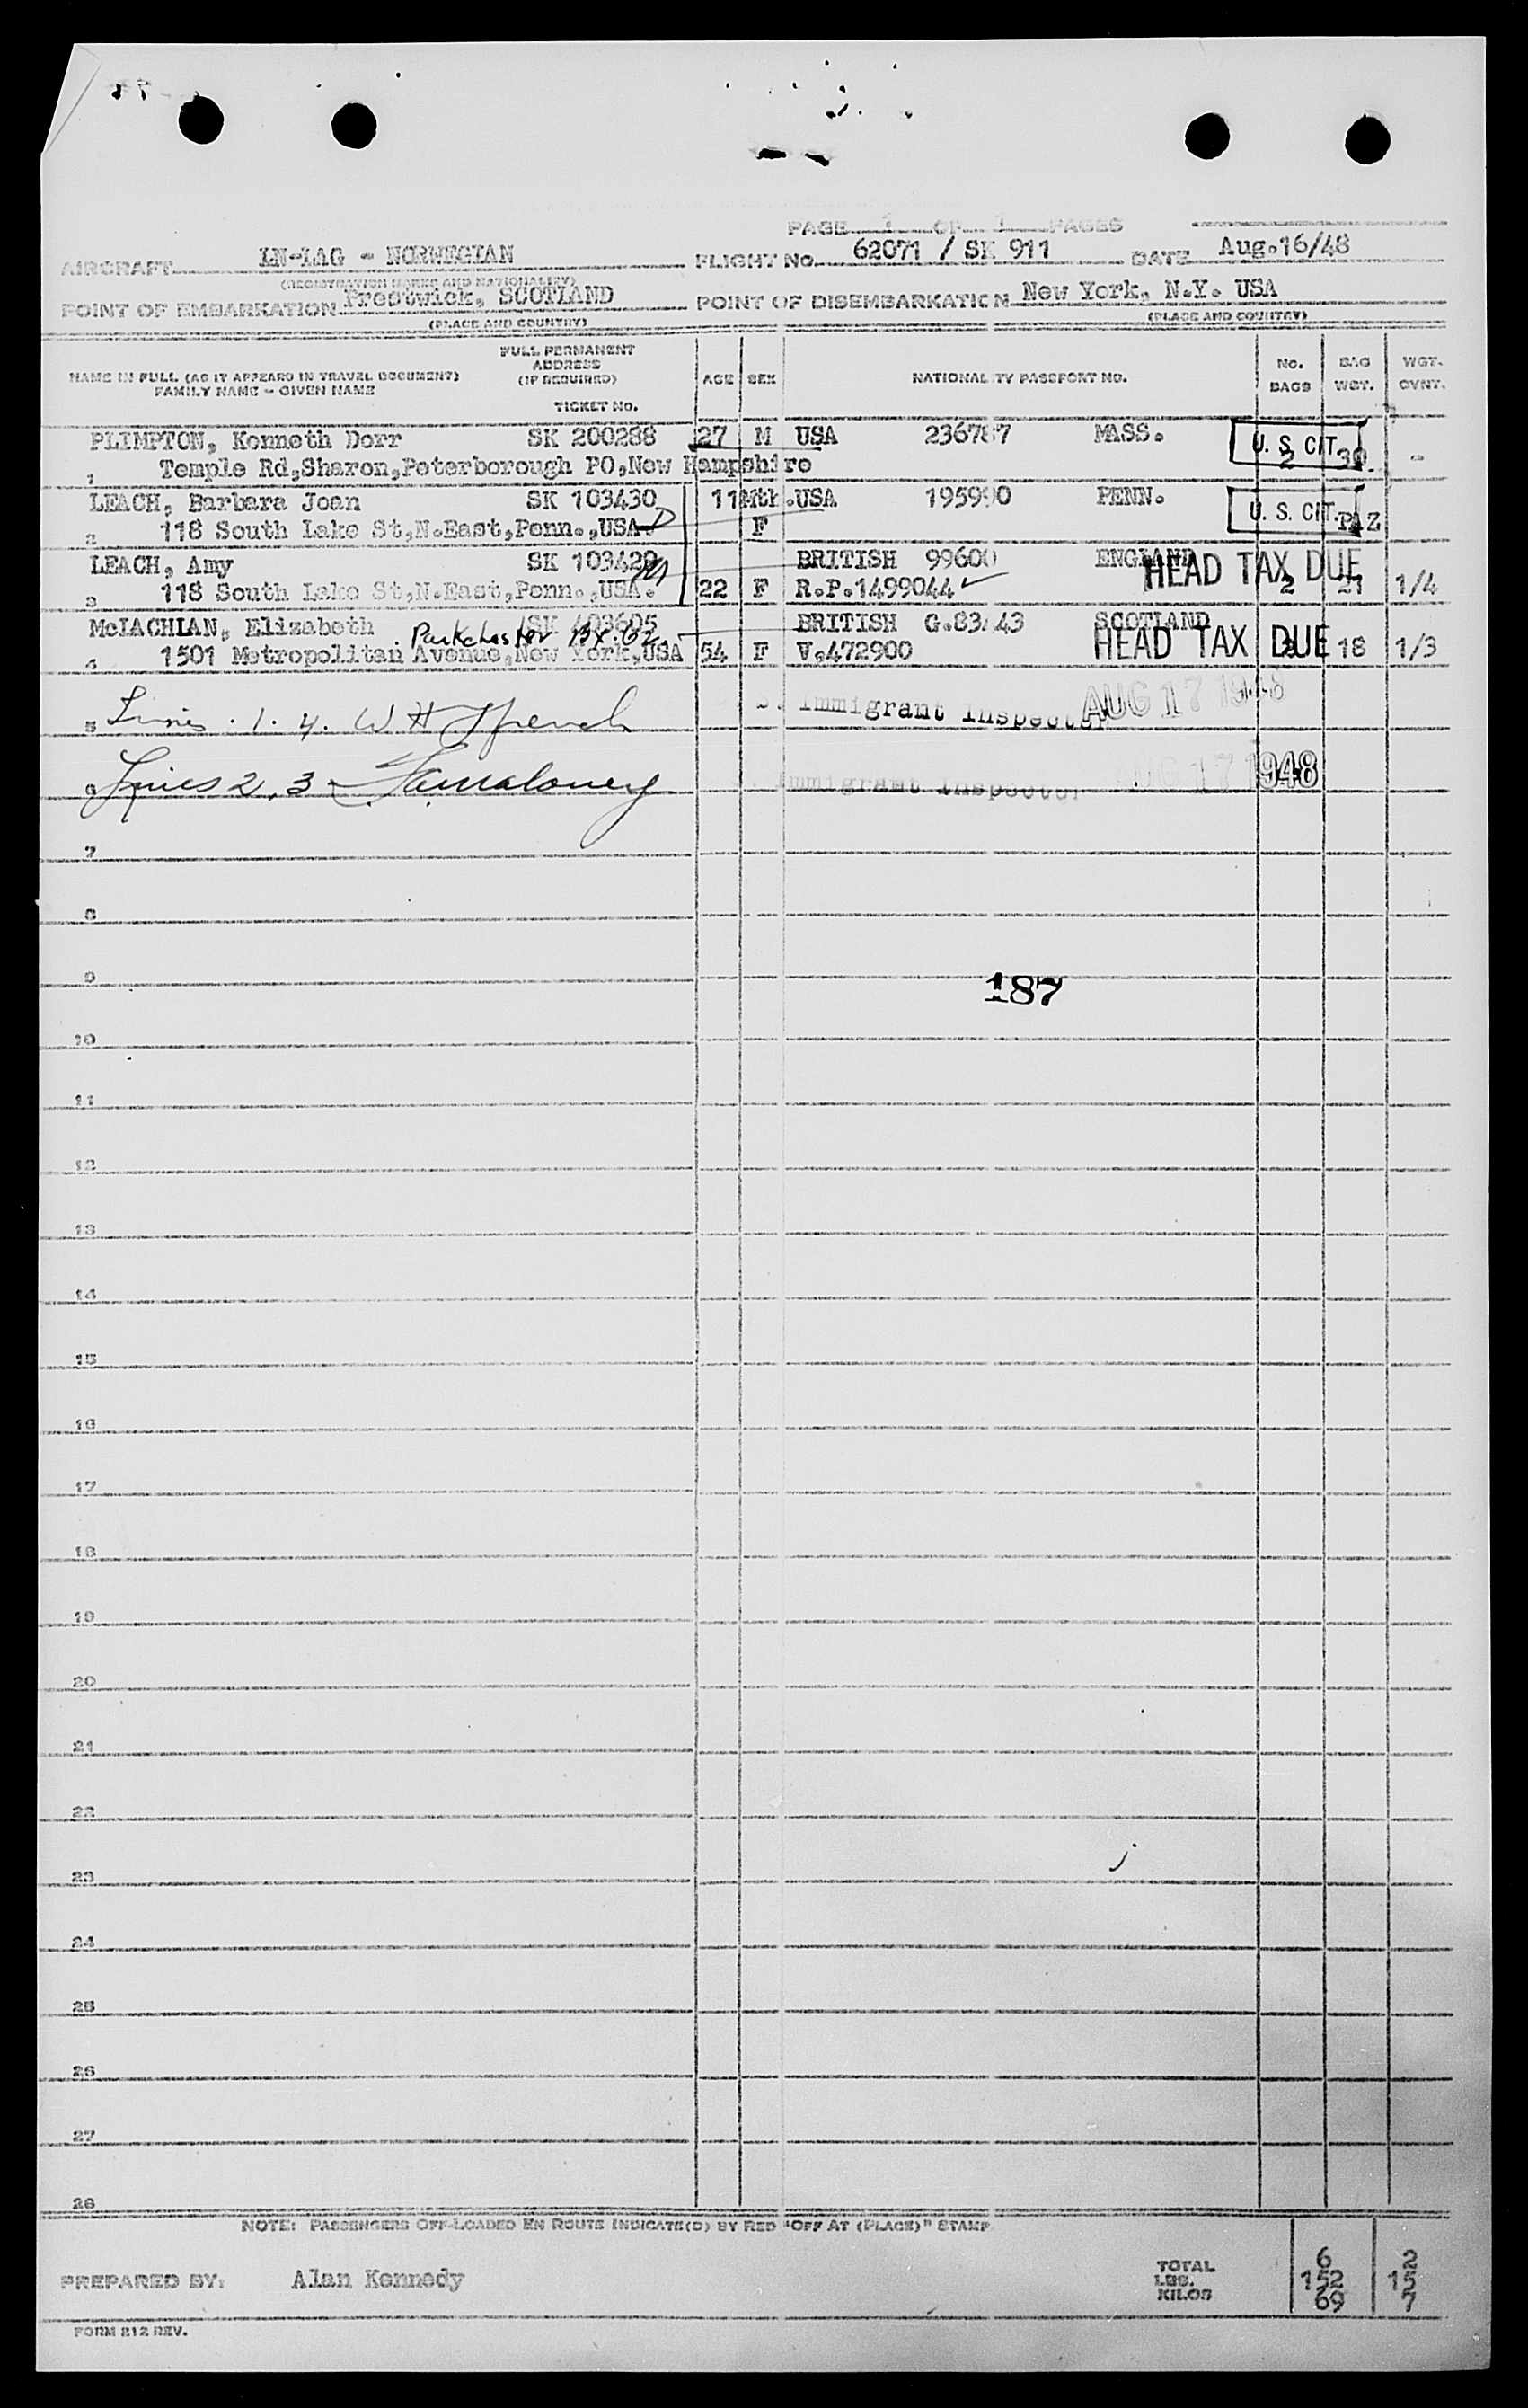 PAGE 1 OF 1 PAGES
AIRCRAFT LN-LAG - NORWEGIAN FLIGHT No. 62071 / SK 911 DATE Aug.16/48
(REGISTRATION MARKS AND NATIONALITY)
POINT OF EMBARKATION Prestwick, SCOTLAND POINT OF DISEMBARKATION New York, N.Y. USA
(PLACE AND COUNTRY) (PLACE AND COUNTRY)
NAME IN FULL (AS IT APPEARS IN TRAVEL DOCUMENT) FAMILY NAME - GIVEN NAME FULL PERMANENT ADDRESS (IF REQUIRED) TICKET No. AGE SEX NATIONALITY PASSPORT NO. No. BAGS BAG WGT. WGT. OVNT.
PLIMPTON, Kenneth Dorr SK 200288 27 M USA MASS. U. S. CIT. 2 30 -
1 Temple Rd,Sharon,Peterborough PO,New Hampshire
LEACH, Barbara Joan SK 103430 11Mth. USA PENN. U. S. CIT.
2 118 South Lake St,N.East,Penn.,USA. F
LEACH, Amy SK 103429 BRITISH 99600 ENGLAND HEAD TAX DUE
3 118 South Lake St,N.East,Penn.,USA. 22 F R.P.1499044 2 21 1/4
McLACHLAN, Elizabeth SK 403605 BRITISH SCOTLAND
Parkchester Bx. 62
4 1501 Metropolitan Avenue,New York,USA 54 F V.472900 HEAD TAX DUE 2 18 1/3
5 Lines . 1. 4. W H French Immigrant Inspector AUG 17 1948
6 Lines 2, 3 Immigrant Inspector AUG 17 1948
7
8
9
187
10
11
12
13
14
15
16
17
18
19
20
21
22
23
24
25
26
27
28
NOTE: PASSENGERS OFF-LOADED EN ROUTE INDICATE(D) BY RED "OFF AT (PLACE)" STAMP
TOTAL 6 2
PREPARED BY: Alan Kennedy LBS. 152 15
KILOS 69 7
FORM 212 REV.